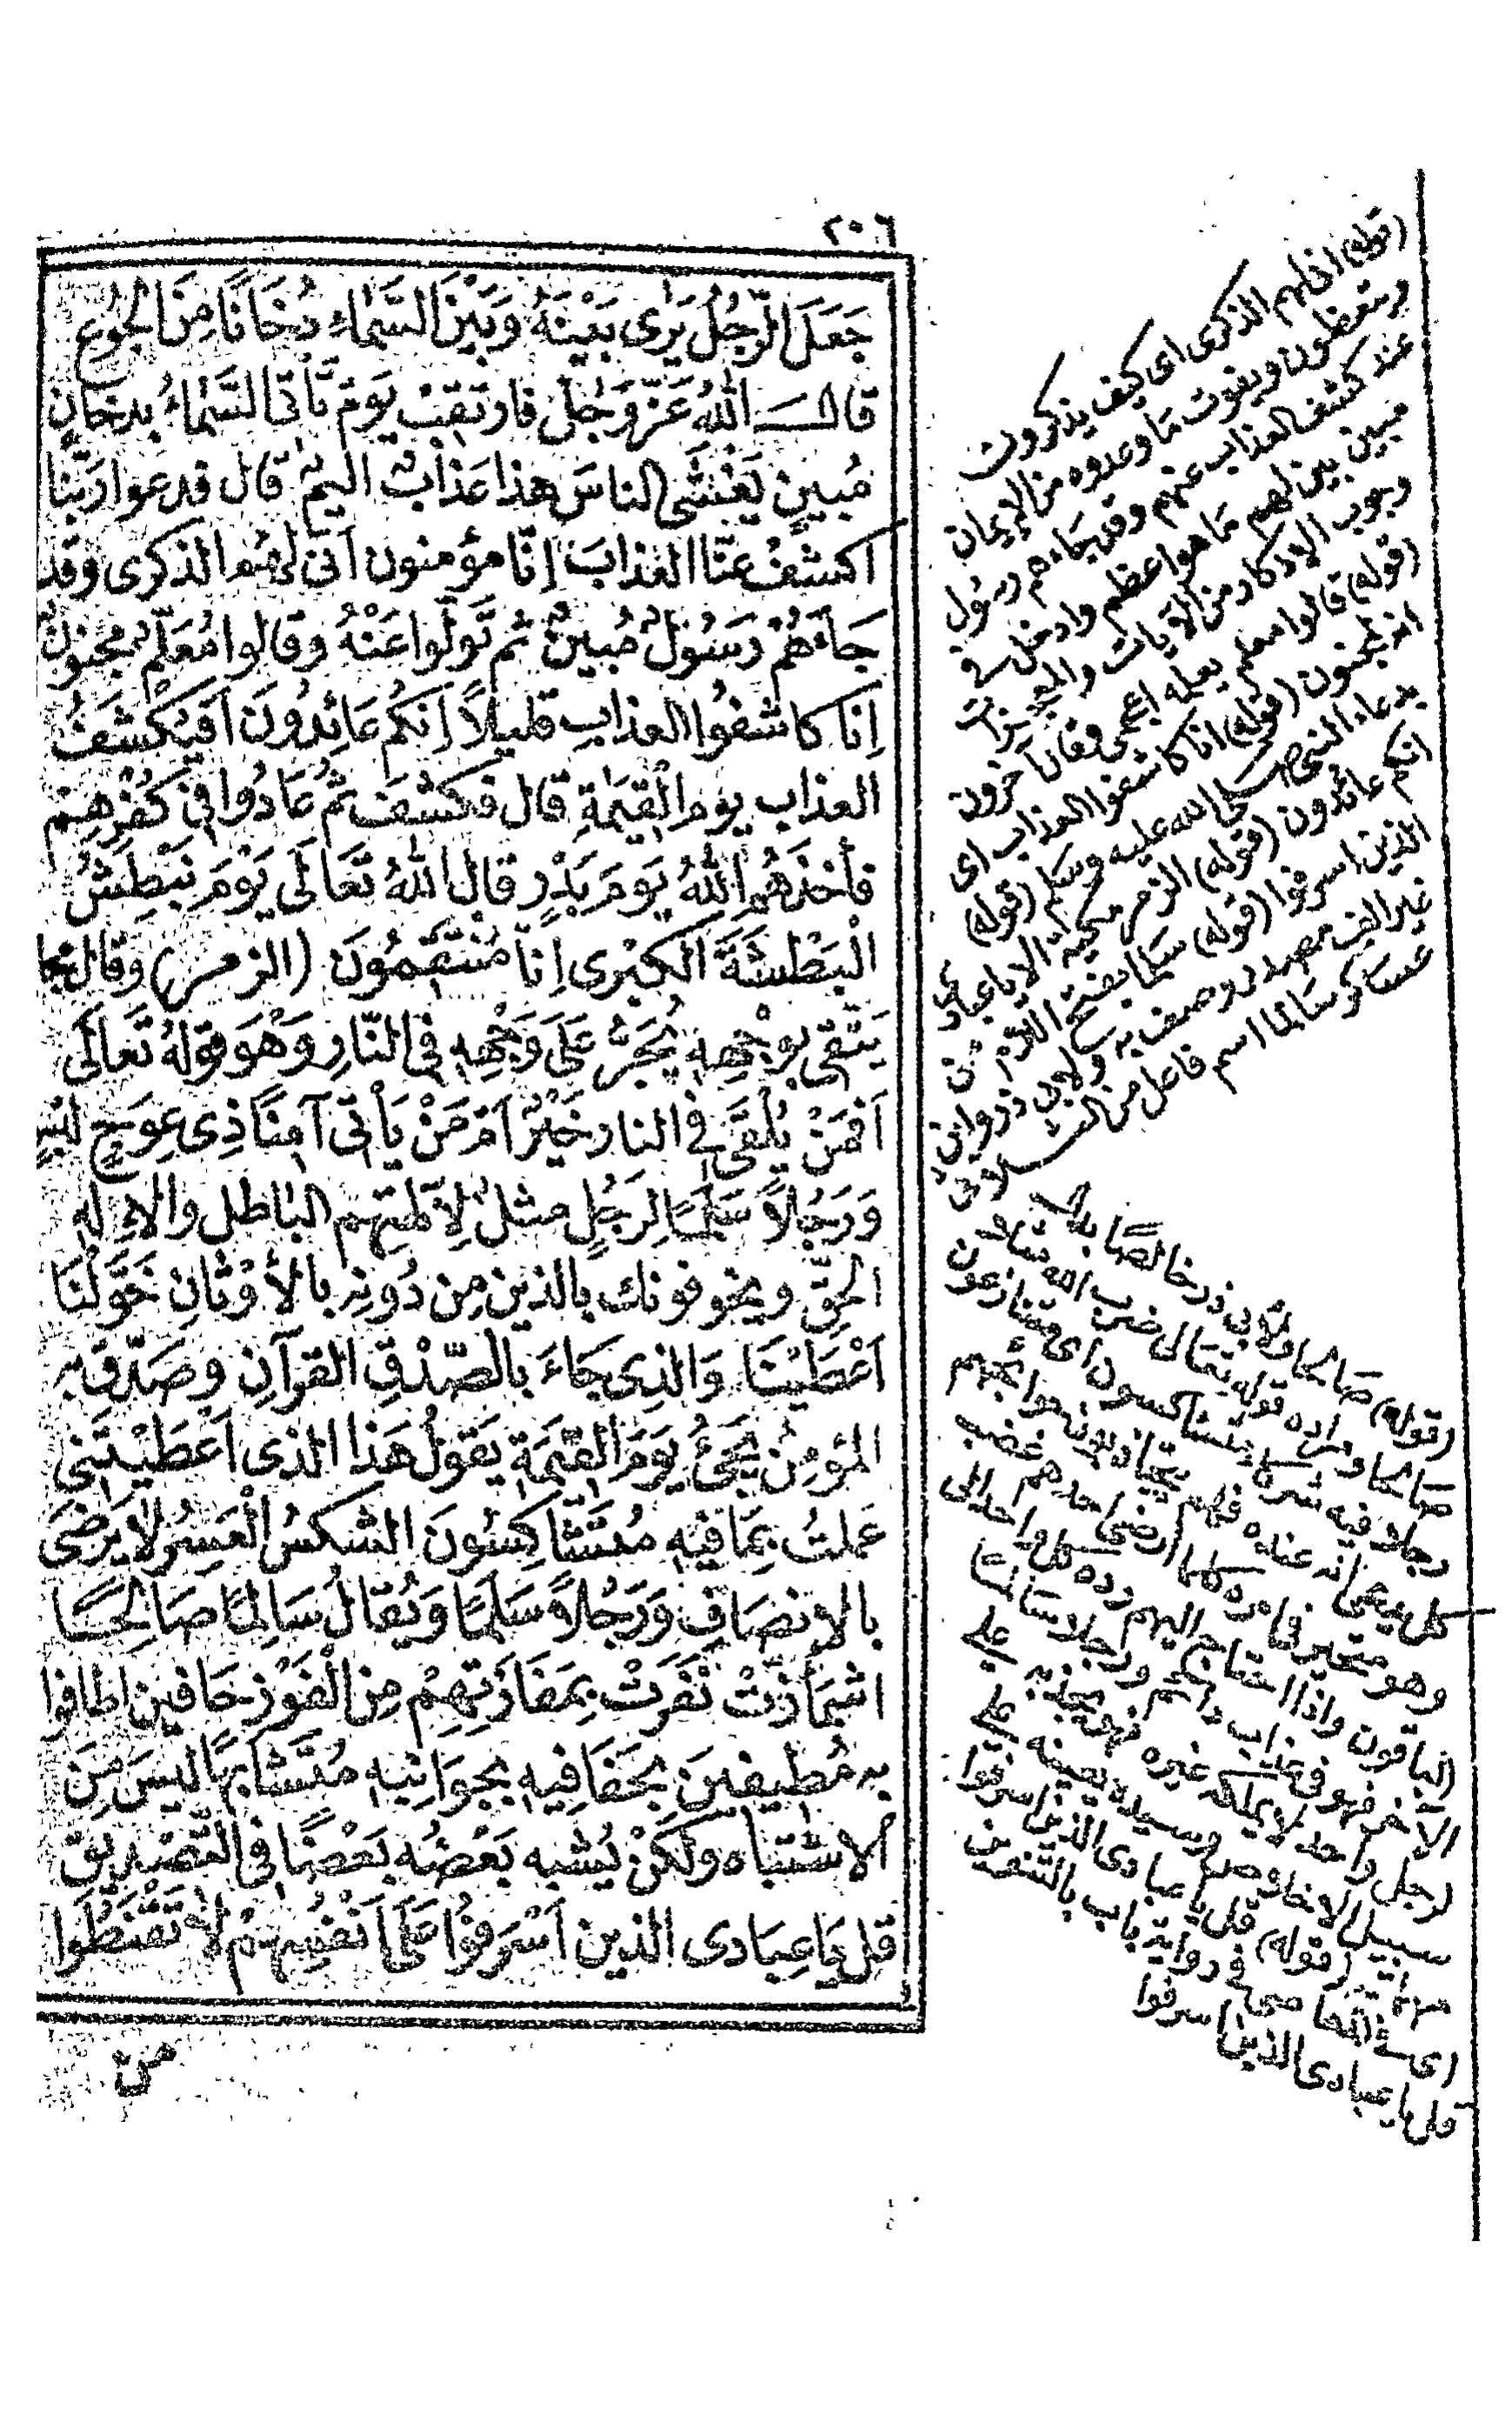 ٢٠٦
جَعَلَ الرَّجُلُ يَرٰى بَيْنَهُ وَبَيْنَ السَّمَاءِ دُخَانًا مِنَ الْجُوعِ
قال اللهُ عَزَّ وَجَلَّ فارتقِبْ يَوْمَ تَأتى السَّمَاءُ بدخانٍ
مُبينٍ يَغْشَى الناسَ هذا عَذابٌ اليمٌ قال فدعوا ربَّنا
اكشفْ عنَّا العذابَ اِنَّا مؤمنون اَنّى لهُم الذكرى وقد
جَاءَهُمْ رَسُولٌ مُبينٌ ثم تَوَلَّوا عَنْهُ وقالوا مُعَلَّمٌ مجنونٌ
اِنا كاشفُوا العذابِ قليلاً اِنكُم عَائِدُونَ اَفَيُكْشَفُ
العذاب يومَ القيمَةِ قال فكشفَ ثم عَادُوا فى كفرِهِم
فأخذَهُم اللهُ يَومَ بَدْرٍ قال اللهُ تَعَالَى يَوْمَ نَبْطِشُ
الْبَطْشَةَ الكبْرى اِنَّا مُنْتَقِمُونَ (الزمر) وقال مجا
يَتَّقى بوجْهِهِ يُجَرُّ عَلَى وَجْهِهِ فى النَّارِ وَهْوَ قولهُ تعالَى
اَفَمَنْ يُلْقَى فى النار خَيْرٌ اَمْ مَنْ يَأتى آمِنًا ذِى عِوَجٍ لبْسٍ
وَرَجُلاً سَلَمًا لِرَجُلٍ مثلٌ لِآلهتِهم الباطل والاِلهِ
الحقِّ ويخوفونك بالذين مِن دُونه بالأوْثَانِ خَوَّلْنَا
اَعْطَيْنَا وَالذِى جَاءَ بالصّدْقِ القرآنِ وصَدَّقَ به
المؤمِنُ يَجئُ يَوْمَ القيمَةِ يَقولُ هَذا الذى اَعْطَيْتَنى
عَملتُ بِمَا فيه مُتَشَاكِسُونَ الشكسُ الْعَسِرُ لا يَرْضَى
بالاِنصَافِ وَرَجُلاً سَلَمًا وَيُقَالُ سَالِمًا صَالِحًا
اشمَأزَّتْ نَفَرَتْ بِمَفَازَتِهِمْ مِنَ الْفَوْزِ حَافين اطافوا
به مُطِيفينَ بحَفَافِيهِ بجوانِبِهِ مُتَشَابِهًا ليسَ مِنَ
الاشتباه ولكنْ يُشبه بَعْضُه بَعْضًا فى التَّصْديق
قل يَا عِبَادى الذين اَسْرَفُوا عَلَى اَنفُسِهِمْ لَا تَقْنَطُوا
من
(قوله) انى لهم الذكرى اى كيف يذكرون
ويتعظون ويفون بما وعدوه من الإيمان
عند كشف العذاب عنهم وقد جاءهم رسول
مبين بين لهم ما هو اعظم وادخل فى
وجوب الادكار من الآيات والمعجزات
(قوله) قالوا معلم يعلمه اعجمى وقال آخرون
انه مجنون (قوله) انا كاشفوا العذاب اى
بدعاء النبى صلى الله عليه وسلم (قوله)
انكم عائدون (قوله) الزمر مكية الا يا عبادى
الذين اسرفوا (قوله) سلما بفتح اللام من
غير الف مصدر وصف به ولابى ذر وابن
عساكر سالما اسم فاعل من
(قوله) صالحا ولأبى ذر خالصا بدل
صالحا ومراده قوله تعالى ضرب الله مثلا
رجلا فيه شركاء متشاكسون اى متنازعون
كل يدعى انه عبده فهم يتجاذبونه حوائجهم
وهو متحير فى امره كلما ارضى احدهم غضب
الباقون واذا احتاج اليهم رده كل واحد الى
الآخر فهو فى عذاب دائم ورجلا سالما
لرجل واحد لا يملكه غيره فهو يخدمه على
سبيل الاخلاص وسيده يعينه على
(قوله) قل يا عبادى الذين اسرفوا
اى فى المعاصى فى رواية باب بالتنوين
قل يا عبادى الذين اسرفوا